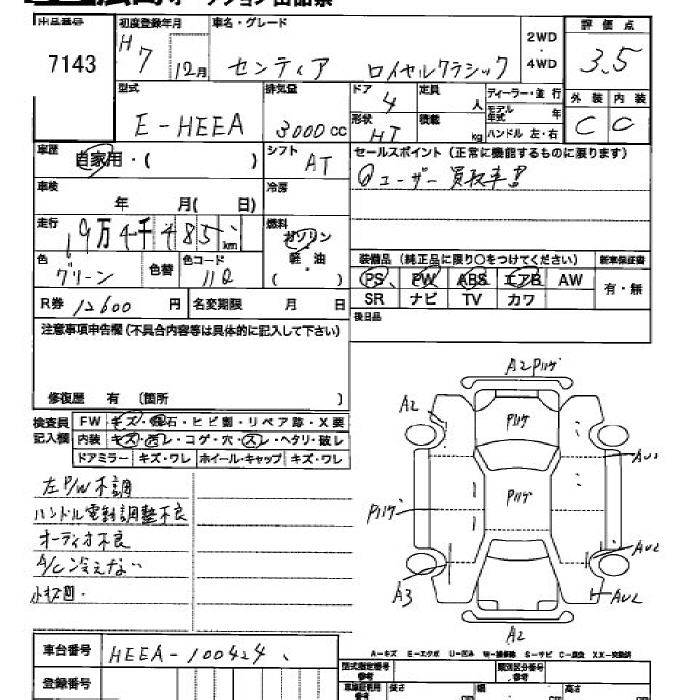 出品番号 初度登録年月 車名・グレード 2WD・4WD 評価点
7143 H7 12月 センティア ロイヤルクラシック 3.5
型式 排気量 ドア 定員 ディーラー・並行 外装 内装
E-HEEA 3000cc 4 人 モデル年式 年 C C
形状 HT 積載 kg ハンドル 左・右
車歴 自家用・( ) シフト AT セールスポイント(正常に機能するものに限ります)
車検 年 月( 日) 冷房 ユーザー買取車
走行 19万4千485 km 燃料 ガソリン 軽油 ・ ( )
色 グリーン 色替 色コード 11Q 装備品(純正品に限り○をつけてください) 新車保証書
PS PW ABS エアB AW 有・無
R券 12600円 名変期限 月 日 SR ナビ TV カワ
注意事項申告欄(不具合内容等は具体的に記入して下さい) 後日品
修復歴 有 (箇所 )
検査員記入欄 FW キズ・飛石・ヒビ割・リペア跡・X要
内装 キズ・汚レ・コゲ・穴・スレ・ヘタリ・破レ
ドアミラー キズ・ワレ ホイール・キャップ キズ・ワレ
左P/W不調
ハンドル電動調整不良
オーディオ不良
A/C冷えない
A2 Pハゲ
A2 Pハゲ
AU1
Pハゲ Pハゲ
AU2
A3 AU2
A2
A-キズ E-エクボ U-凹み W-補修跡 S-サビ C-腐食 XX-交換済
車台番号 HEEA-100424
型式指定番号 参考 類別区分番号 参考
登録番号 長さ 幅 高さ